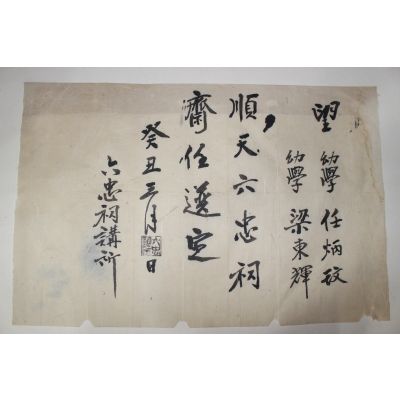 望
幼學 任炳玟
幼學 梁東輝
順天六忠祠
齋任選定
癸丑三月 日
六忠祠講所